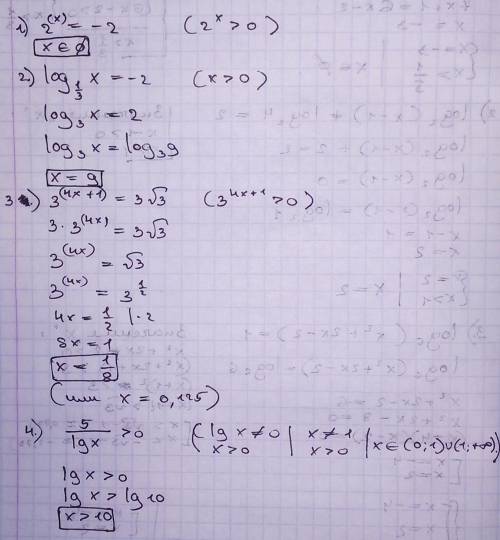 1) 2^(x) = -2 (2^x > 0)
x ∈ ∅
2) log_{1/3} x = -2 (x > 0)
log_3 x = 2
log_3 x = log_3 9
x = 9
3.) 3^(4x+1) = 3√3 (3^{4x+1} > 0)
3 · 3^(4x) = 3√3
3^(4x) = √3
3^(4x) = 3^{1/2}
4x = 1/2 | · 2
8x = 1
x = 1/8
(или x = 0,125)
4.) 5/lg x > 0 (lg x ≠ 0 | x ≠ 1 | x ∈ (0;1)∪(1;+∞)
x > 0 | x > 0 |
lg x > 0
lg x > lg 10
x > 10